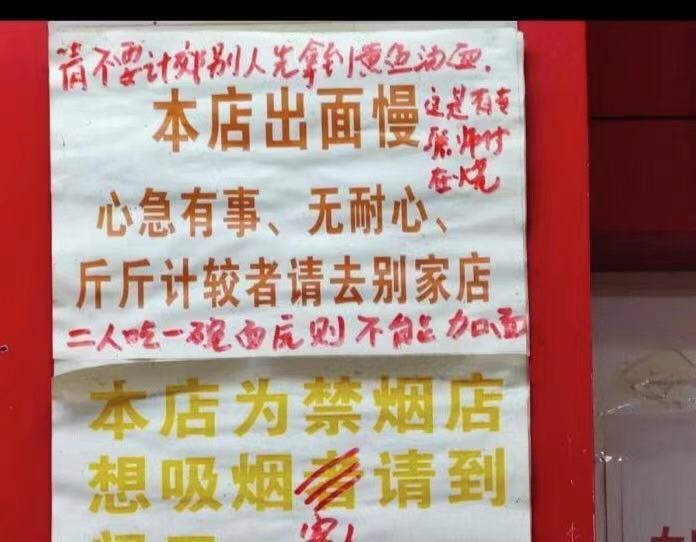 请不要计较别人先拿到黄鱼汤面.
本店出面慢
这是有专
师付
在烧
心急有事、无耐心、
斤斤计较者请去别家店
二人吃一碗面原则不能加面
本店为禁烟店
想吸烟者请到
客人